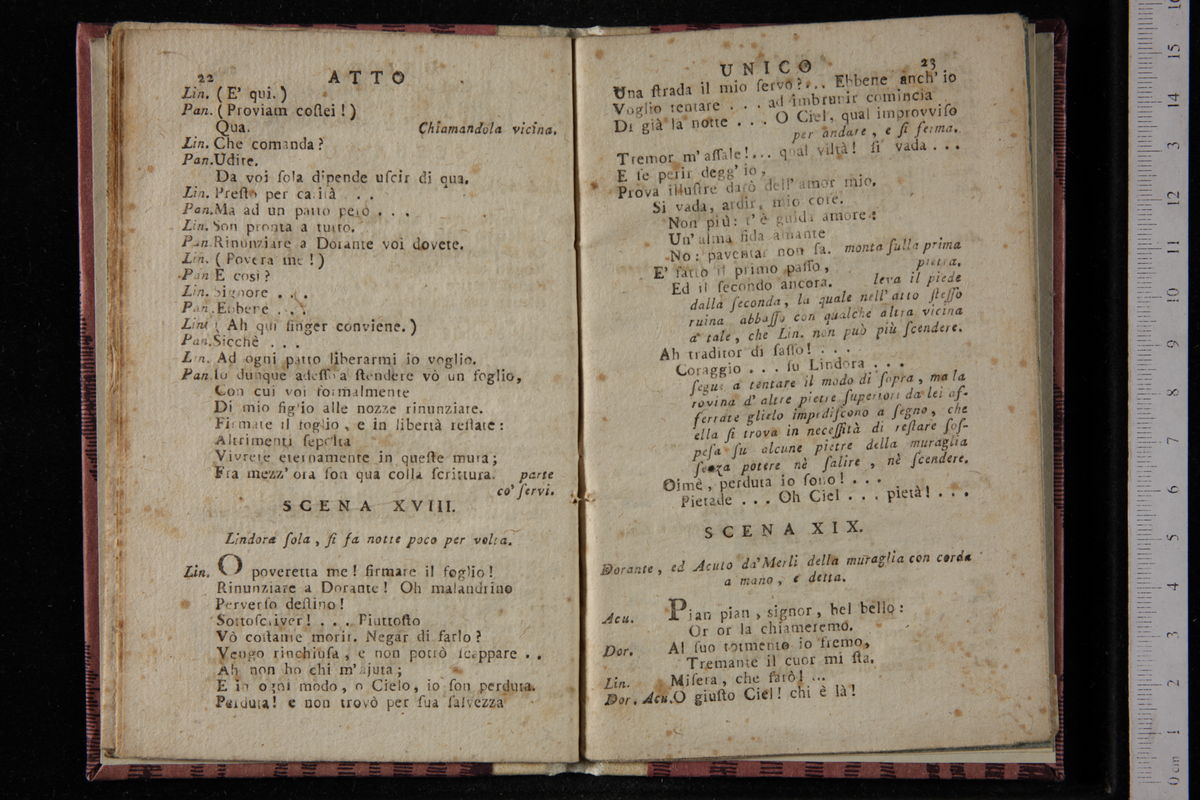 22 ATTO
Lin. (E' qui.)
Pan. (Proviam coſtei!)
Qua. Chiamandola vicina.
Lin. Che comanda?
Pan. Udite.
Da voi ſola dipende uſcir di qua.
Lin. Preſto per carità . .
Pan. Ma ad un patto però . . .
Lin. Son pronta a tutto.
Pan. Rinunziare a Dorante voi dovete.
Lin. (Povera me!)
Pan E così?
Lin. Signore . . .
Pan. Ebbene . . .
Lin. ( Ah qui finger conviene.)
Pan. Sicchè . . .
Lin. Ad ogni patto liberarmi io voglio.
Pan. Io dunque adeſſo a ſtendere vò un foglio,
Con cui voi formalmente
Di mio figlio alle nozze rinunziate.
Firmate il foglio, e in libertà reſtate:
Altrimenti ſepolta
Vivrete eternamente in queſte mura;
Fra mezz' ora ſon qua colla ſcrittura. parte
co' ſervi.
SCENA XVIII.
Lindora ſola, ſi fa notte poco per volta.
Lin. O poveretta me! firmare il foglio!
Rinunziare a Dorante! Oh malandrino
Perverſo deſtino!
Sottoſcriver! . . . Piuttoſto
Vò coſtante morir. Negar di farlo?
Vengo rinchiuſa, e non potrò ſcappare . .
Ah non ho chi m'ajuta;
E in ogni modo, o Cielo, io ſon perduta.
Perduta! e non trovò per ſua ſalvezza
UNICO 23
Una ſtrada il mio ſervo? . . . Ebbene anch' io
Voglio tentare . . . ad imbrunir comincia
Di già la notte . . . O Ciel, qual improvviſo
per andare, e ſi ferma.
Tremor m' aſſale! . . . qual viltà! ſi vada . . .
E ſe perir degg' io,
Prova illuſtre darò dell' amor mio.
Si vada, ardir, mio core.
Non più: t' è guida amore:
Un' alma fida amante
No: paventar non ſa. monta ſulla prima
pietra.
E' fatto il primo paſſo,
Ed il ſecondo ancora. leva il piede
dalla ſeconda, la quale nell' atto ſteſſo
ruina abbaſſo con qualche altra vicina
a tale, che Lin. non può più ſcendere.
Ah traditor di ſaſſo! . . . .
Coraggio . . . ſu Lindora . . .
ſegue a tentare il modo di ſopra, ma la
rovina d' altre pietre ſuperiori da lei af-
ferrate glielo impediſcono a ſegno, che
ella ſi trova in neceſſità di reſtare ſoſ-
peſa ſu alcune pietre della muraglia
ſenza potere nè ſalire, nè ſcendere.
Oimè, perduta io ſono! . . .
Pietade . . . Oh Ciel . . . pietà! . . .
SCENA XIX.
Dorante, ed Acuto da' Merli della muraglia con corda
a mano, e detta.
Acu. Pian pian, signor, bel bello:
Or or la chiameremo.
Dor. Al ſuo tormento io fremo,
Tremante il cuor mi ſta.
Lin. Miſera, che farò! ...
Dor. Acu. O giuſto Ciel! chi è là!